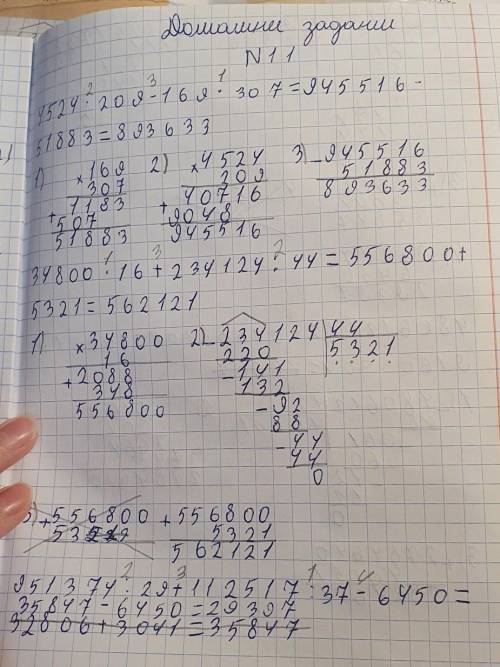 Домашни задании
N11
4524 · 209 - 169 · 307 = 945516 -
2 3 1
51883 = 893633
1) × 169
307
1183
+ 507
51883
2) × 4524
209
40716
+ 9048
945516
3) - 945516
51883
893633
34800 · 16 + 234124 : 44 = 556800 +
1 3 2
5321 = 562121
1) × 34800
16
+ 2088
348
556800
2) - 234124 | 44
220 5321
- 141
132
- 92
88
- 44
44
0
+ 556800
+ 556800
5321
562121
951374 : 29 + 112517 : 37 - 6450 =
2 3 1 4
35847 - 6450 = 29397
32806 + 3041 = 35847